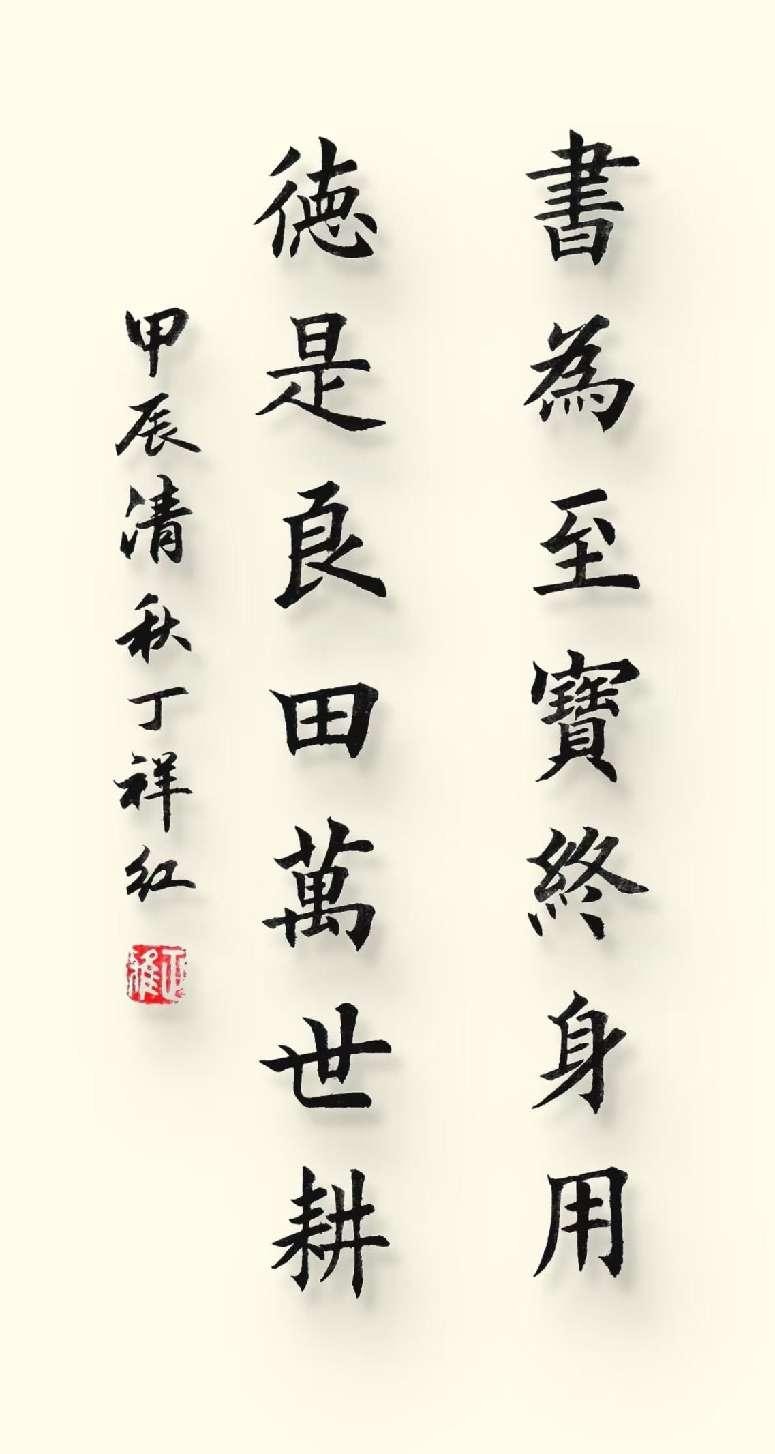 書為至寶終身用
徳是良田萬世耕
甲辰清秋丁祥红